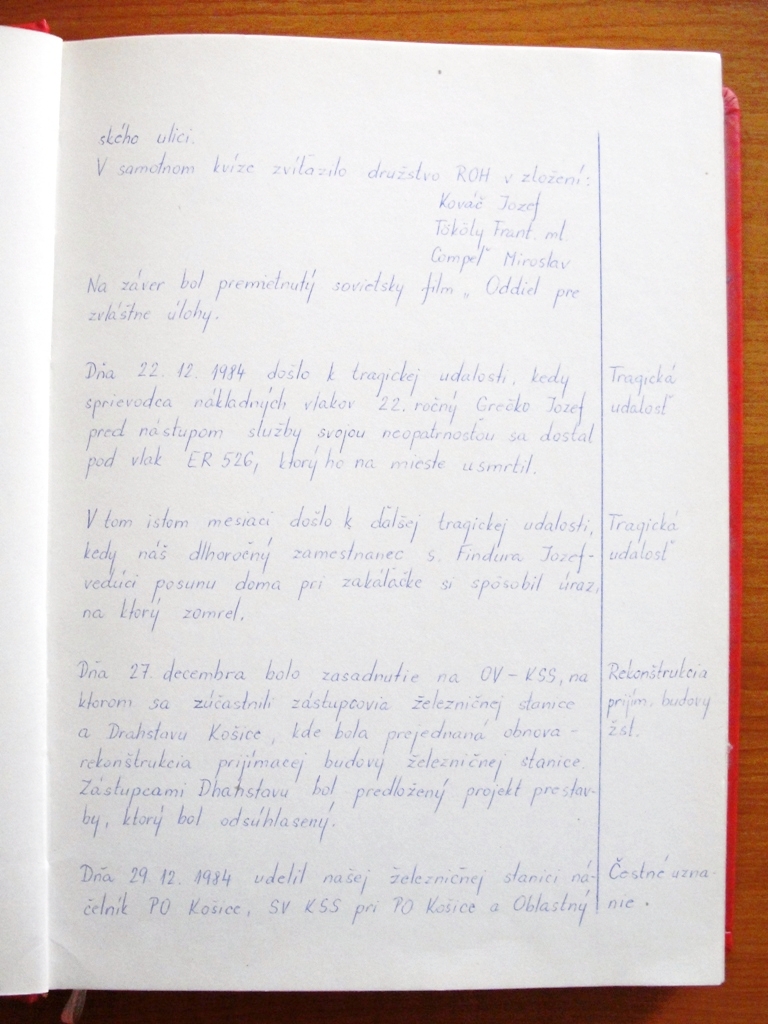 ského ulici.
V samotnom kvíze zvíťazilo družstvo ROH v zložení:
Kováč Jozef
Tököly Frant. ml.
Compeľ Miroslav
Na záver bol premietnutý sovietsky film „ Oddiel pre
zvláštne úlohy.
Dňa 22. 12. 1984 došlo k tragickej udalosti, kedy
sprievodca nákladných vlakov 22. ročný Grečko Jozef
pred nástupom služby svojou neopatrnosťou sa dostal
pod vlak ER 526, ktorý ho na mieste usmrtil.
Tragická
udalosť
V tom istom mesiaci došlo k ďalšej tragickej udalosti,
kedy náš dlhoročný zamestnanec s. Findura Jozef-
vedúci posunu doma pri zakáľačke si spôsobil úraz,
na ktorý zomrel.
Tragická
udalosť
Dňa 27. decembra bolo zasadnutie na OV-KSS, na
ktorom sa zúčastnili zástupcovia železničnej stanice
a Drahstavu Košice, kde bola prejednaná obnova -
rekonštrukcia prijímacej budovy železničnej stanice.
Zástupcami Dhahstavu bol predložený projekt prestav-
by, ktorý bol odsúhlasený.
Rekonštrukcia
prijím. budovy
žst.
Dňa 29. 12. 1984 udelil našej železničnej stanici ná-
čelník PO Košice, SV KSS pri PO Košice a Oblastný
Čestné uzna-
nie.